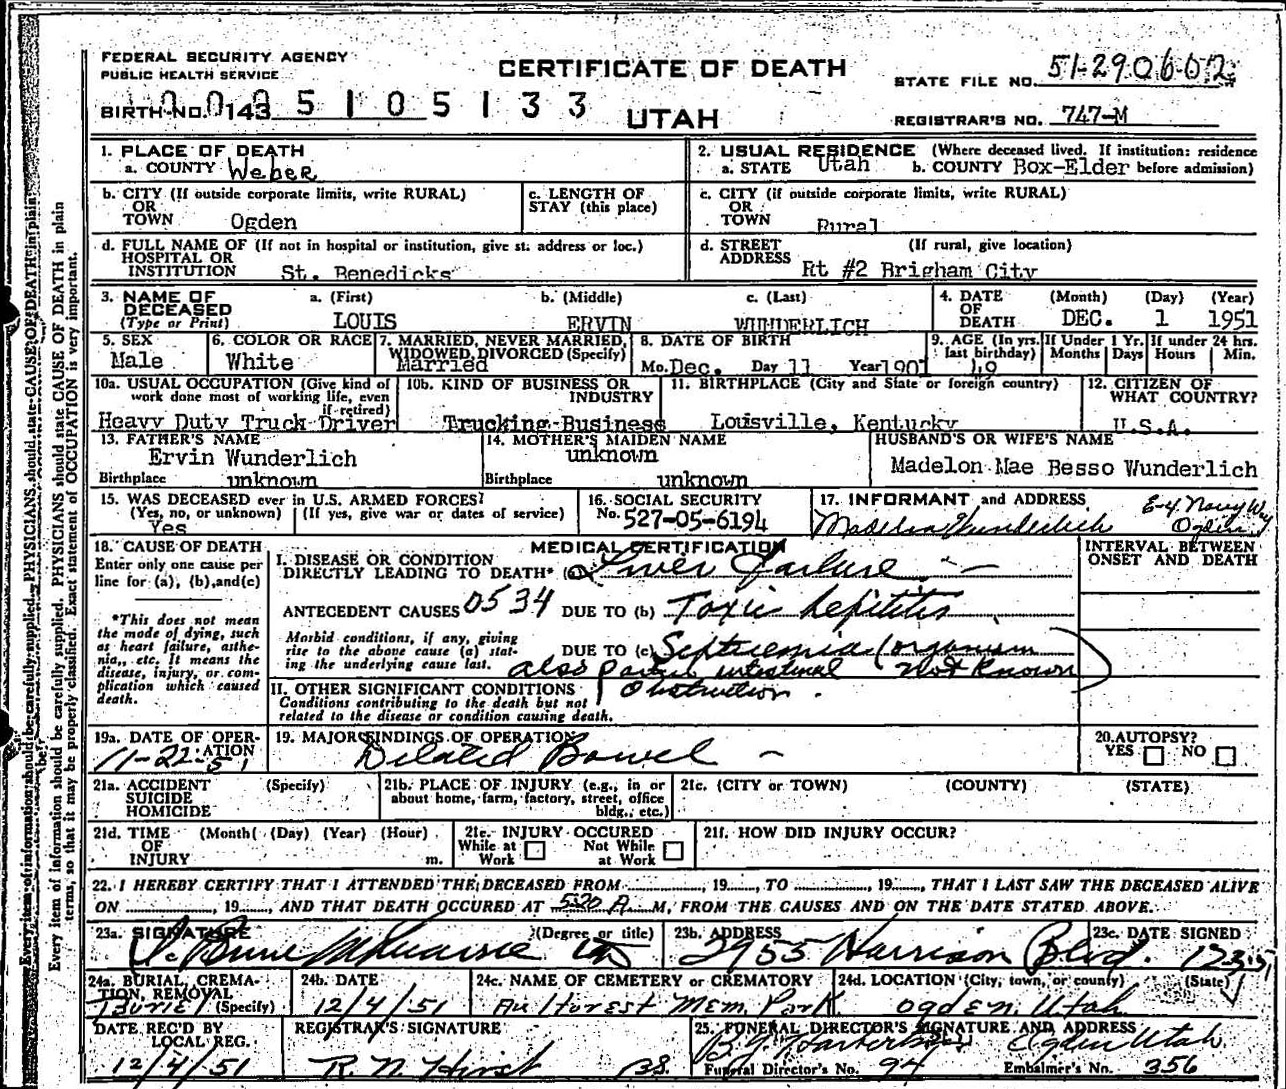 FEDERAL SECURITY AGENCY
PUBLIC HEALTH SERVICE
CERTIFICATE OF DEATH
STATE FILE NO. 51-290602
BIRTH NO. 143 5 1 0 5 1 3 3
UTAH
REGISTRAR'S NO. 747-M
1. PLACE OF DEATH
a. COUNTY Weber
2. USUAL RESIDENCE (Where deceased lived. If institution: residence
a. STATE Utah b. COUNTY Box-Elder before admission)
b. CITY (If outside corporate limits, write RURAL)
OR
TOWN Ogden
c. LENGTH OF
STAY (this place)
c. CITY (if outside corporate limits, write RURAL)
OR
TOWN Rural
d. FULL NAME OF (If not in hospital or institution, give st. address or loc.)
HOSPITAL OR
INSTITUTION St. Benedicks
d. STREET (If rural, give location)
ADDRESS Rt #2 Brigham City
3. NAME OF
DECEASED
(Type or Print)
a. (First) b. (Middle) c. (Last)
LOUIS ERVIN WUNDERLICH
4. DATE (Month) (Day) (Year)
OF
DEATH DEC. 1 1951
5. SEX
Male
6. COLOR OR RACE
White
7. MARRIED, NEVER MARRIED,
WIDOWED, DIVORCED (Specify)
Married
8. DATE OF BIRTH
Mo. Dec. Day 11 Year 1901
9. AGE (In yrs.
last birthday)
49
If Under 1 Yr.
Months Days
If under 24 hrs.
Hours Min.
10a. USUAL OCCUPATION (Give kind of
work done most of working life, even
if retired)
Heavy Duty Truck Driver
10b. KIND OF BUSINESS OR
INDUSTRY
Trucking Business
11. BIRTHPLACE (City and State or foreign country)
Louisville, Kentucky
12. CITIZEN OF
WHAT COUNTRY?
U.S.A.
13. FATHER'S NAME
Ervin Wunderlich
Birthplace unknown
14. MOTHER'S MAIDEN NAME
unknown
Birthplace unknown
HUSBAND'S OR WIFE'S NAME
Madelon Mae Besso Wunderlich
15. WAS DECEASED ever in U.S. ARMED FORCES?
(Yes, no, or unknown) (If yes, give war or dates of service)
Yes
16. SOCIAL SECURITY
No. 527-05-6194
17. INFORMANT and ADDRESS
Madelon Wunderlich E-4 Navy Wy
Ogden
18. CAUSE OF DEATH
Enter only one cause per
line for (a), (b), and (c)
*This does not mean
the mode of dying, such
as heart failure, asthe-
nia, etc. It means the
disease, injury, or com-
plication which caused
death.
MEDICAL CERTIFICATION
INTERVAL BETWEEN
ONSET AND DEATH
I. DISEASE OR CONDITION
DIRECTLY LEADING TO DEATH* (a) Liver Failure
ANTECEDENT CAUSES 0534 DUE TO (b) Toxic hepititis
Morbid conditions, if any, giving
rise to the above cause (a) stat-
ing the underlying cause last.
DUE TO (c) Septicemia (organism
Not Known)
also partial intestinal
Obstruction.
II. OTHER SIGNIFICANT CONDITIONS
Conditions contributing to the death but not
related to the disease or condition causing death.
19a. DATE OF OPER-
ATION
11-22-51
19. MAJOR FINDINGS OF OPERATION
Dilated Bowel
20. AUTOPSY?
YES NO
21a. ACCIDENT (Specify)
SUICIDE
HOMICIDE
21b. PLACE OF INJURY (e.g., in or
about home, farm, factory, street, office
bldg., etc.)
21c. (CITY OR TOWN) (COUNTY) (STATE)
21d. TIME (Month) (Day) (Year) (Hour)
OF
INJURY m.
21e. INJURY OCCURED
While at Not While
Work at Work
21f. HOW DID INJURY OCCUR?
22. I HEREBY CERTIFY THAT I ATTENDED THE DECEASED FROM , 19 , TO , 19 , THAT I LAST SAW THE DECEASED ALIVE
ON , 19 , AND THAT DEATH OCCURED AT 5:20 A M, FROM THE CAUSES AND ON THE DATE STATED ABOVE.
23a. SIGNATURE (Degree or title)
23b. ADDRESS
2955 Harrison Blvd.
23c. DATE SIGNED
12-3-51
24a. BURIAL, CREMA-
TION, REMOVAL
Buriel (Specify)
24b. DATE
12/4/51
24c. NAME OF CEMETERY or CREMATORY
Aultorest Mem. Park
24d. LOCATION (City, town, or county) (State)
Ogden, Utah
DATE REC'D BY
LOCAL REG.
12/4/51
REGISTRAR'S SIGNATURE
R. N. Hirst
25. FUNERAL DIRECTOR'S SIGNATURE AND ADDRESS
Ogden Utah
Funeral Director's No. 94 Embalmer's No. 356
Every item of information should be carefully supplied. PHYSICIANS should state CAUSE OF DEATH in plain
terms, so that it may be properly classified. Exact statement of OCCUPATION is very important.